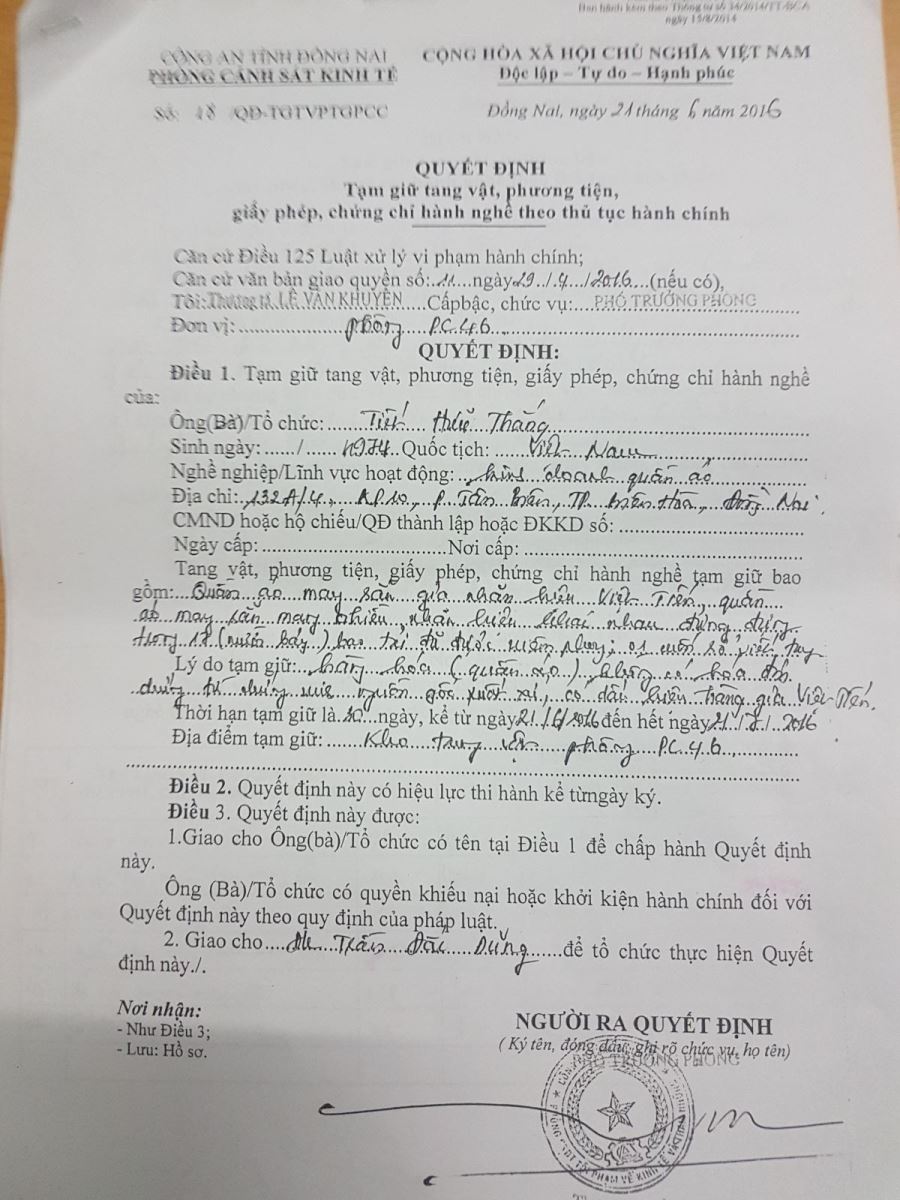 Ban hành kèm theo Thông tư số 34/2014/TT-BCA
ngày 15/8/2014
CÔNG AN TỈNH ĐỒNG NAI
PHÒNG CẢNH SÁT KINH TẾ
CỘNG HÒA XÃ HỘI CHỦ NGHĨA VIỆT NAM
Độc lập – Tự do – Hạnh phúc
Số: 18 /QĐ-TGTVPTGPCC
Đồng Nai, ngày 21 tháng 6 năm 2016
QUYẾT ĐỊNH
Tạm giữ tang vật, phương tiện,
giấy phép, chứng chỉ hành nghề theo thủ tục hành chính
Căn cứ Điều 125 Luật xử lý vi phạm hành chính;
Căn cứ văn bản giao quyền số:..11....ngày 29../.4../2016....(nếu có),
Tôi:Thượng tá. LÊ VĂN KHUYÊN....Cấpbậc, chức vụ:...PHÓ TRƯỞNG PHÒNG
Đơn vị:....................phòng....P.C.46..
QUYẾT ĐỊNH:
Điều 1. Tạm giữ tang vật, phương tiện, giấy phép, chứng chỉ hành nghề
của:
Ông(Bà)/Tổ chức:.... Hữu Thắng
Sinh ngày: ....../......1974..Quốc tịch:......Việt..Nam
Nghề nghiệp/Lĩnh vực hoạt động:..kinh doanh quần áo
Địa chỉ:..132A/4.., KP10.., P. Tân Biên, TP. Biên Hòa, Đồng Nai.
CMND hoặc hộ chiếu/QĐ thành lập hoặc ĐKKD số: ...............................
Ngày cấp: ..................................Nơi cấp: ...............................
Tang vật, phương tiện, giấy phép, chứng chỉ hành nghề tạm giữ bao
gồm:...Quần áo may sẵn giả nhãn hiệu Việt Tiến, quần
áo may sẵn mang nhiều nhãn hiệu khác nhau đựng
trong 17 (mười bảy) bao tải đã được niêm phong; 01 cuốn sổ viết tay
Lý do tạm giữ:...hàng hóa (quần áo) không có hóa đơn
chứng từ chứng minh nguồn gốc xuất xứ, có dấu hiệu hàng giả Việt-Tiến.
Thời hạn tạm giữ là 30...ngày, kể từ ngày 21./6/2016 đến hết ngày 21../7./..2016
Địa điểm tạm giữ: ......Kho tang vật phòng P.C.46..
Điều 2. Quyết định này có hiệu lực thi hành kể từngày ký.
Điều 3. Quyết định này được:
1.Giao cho Ông(bà)/Tổ chức có tên tại Điều 1 để chấp hành Quyết định
này.
Ông (Bà)/Tổ chức có quyền khiếu nại hoặc khởi kiện hành chính đối với
Quyết định này theo quy định của pháp luật.
2. Giao cho.... Trần Đắc Dũng.......để tổ chức thực hiện Quyết
định này./.
Nơi nhận:
- Như Điều 3;
- Lưu: Hồ sơ.
NGƯỜI RA QUYẾT ĐỊNH
( Ký tên, đóng dấu, ghi rõ chức vụ, họ tên)
PHÓ TRƯỞNG PHÒNG